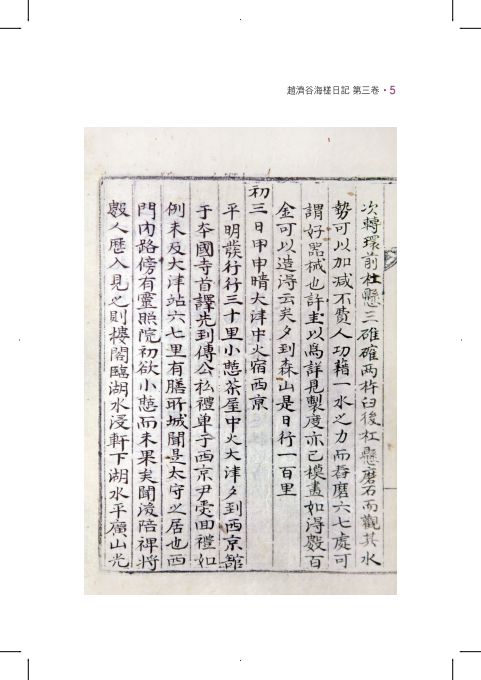 趙濟谷海槎日記 第三卷 • 5
次轉環前杠懸三碓碓兩杵臼後杠懸磨石而觀其水
勢可以加减不費人功藉一水之力而舂磨六七處可
謂好器械也許圭以爲詳見製度亦已模畫如淂數百
金可以造淂云矣夕到森山是日行一百里
初三日甲申晴大津中火宿西京
平明發行行三十里小憇茶屋中火大津夕到西京舘
于夲國寺首譯先到傳公私禮单于西京尹處回禮如
例未及大津站六七里有膳所城聞是太守之居也西
門內路傍有靈照院初欲小憇而未果矣聞後陪裨將
數人歷入見之則樓閣臨湖水浸軒下湖水平廣山光